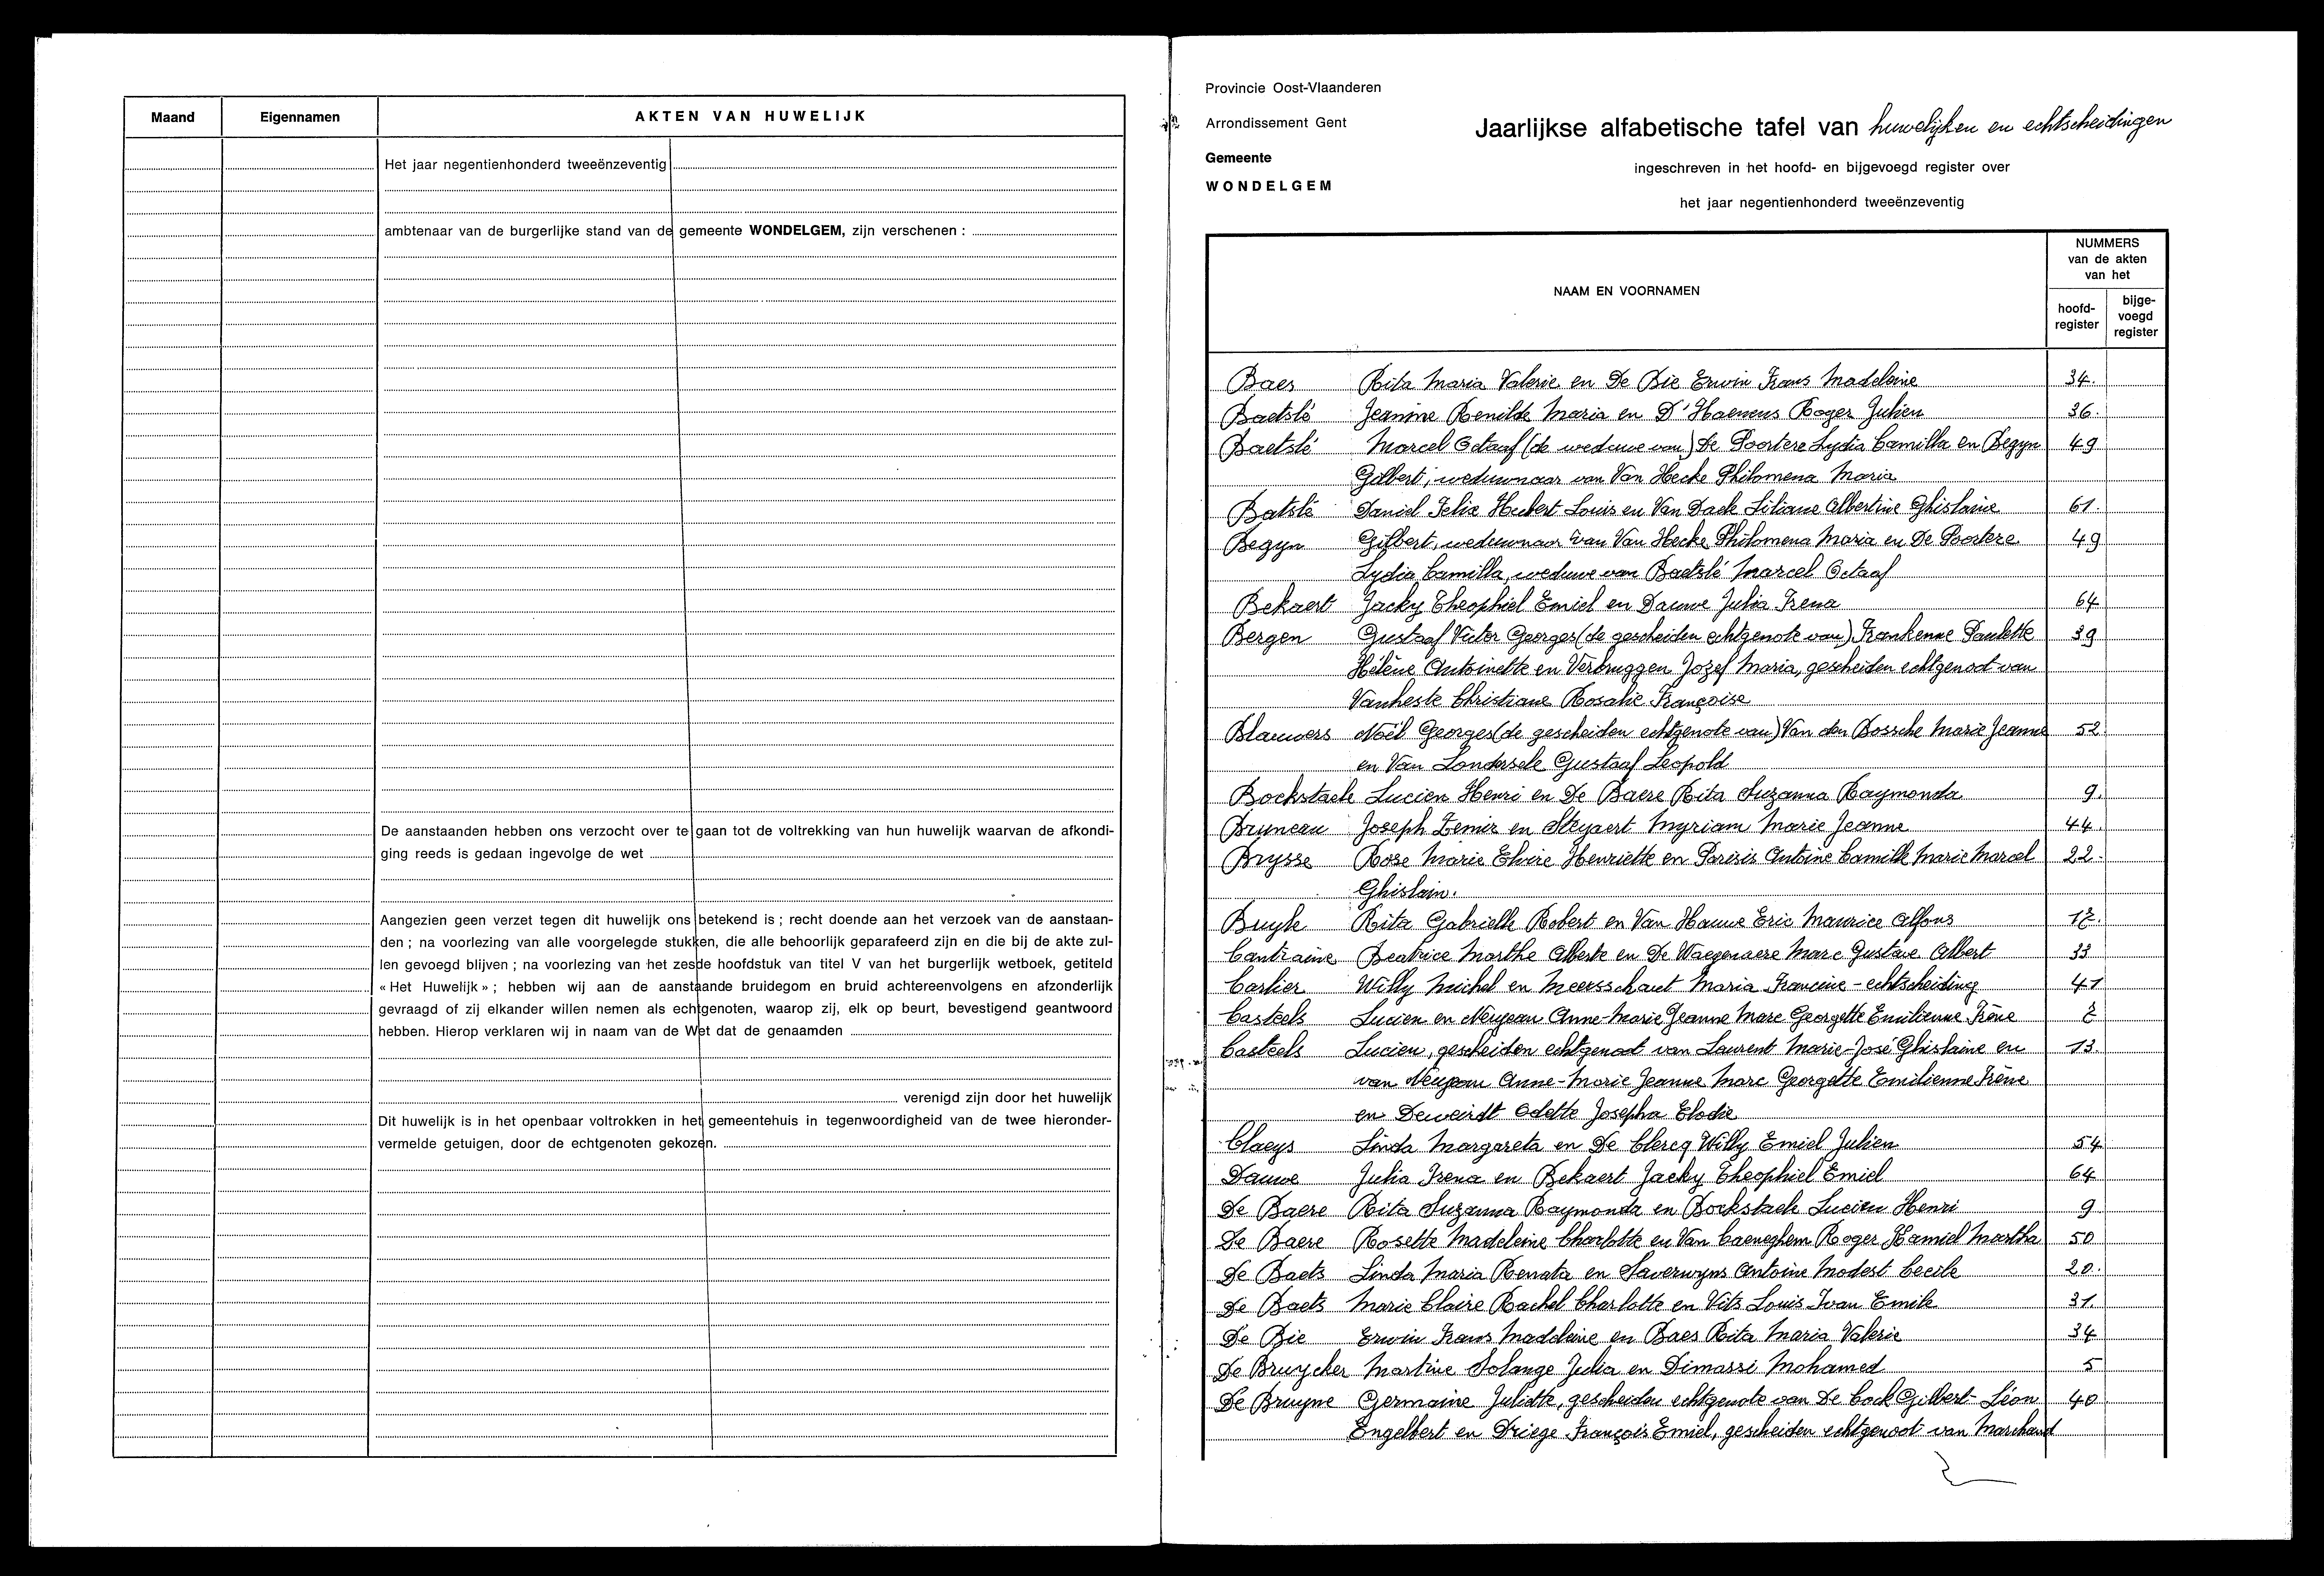 Maand Eigennamen AKTEN VAN HUWELIJK
Het jaar negentienhonderd tweeënzeventig
ambtenaar van de burgerlijke stand van de gemeente WONDELGEM, zijn verschenen :
De aanstaanden hebben ons verzocht over te gaan tot de voltrekking van hun huwelijk waarvan de afkondi-
ging reeds is gedaan ingevolge de wet
Aangezien geen verzet tegen dit huwelijk ons betekend is ; recht doende aan het verzoek van de aanstaan-
den ; na voorlezing van alle voorgelegde stukken, die alle behoorlijk geparafeerd zijn en die bij de akte zul-
len gevoegd blijven ; na voorlezing van het zesde hoofdstuk van titel V van het burgerlijk wetboek, getiteld
« Het Huwelijk » ; hebben wij aan de aanstaande bruidegom en bruid achtereenvolgens en afzonderlijk
gevraagd of zij elkander willen nemen als echtgenoten, waarop zij, elk op beurt, bevestigend geantwoord
hebben. Hierop verklaren wij in naam van de Wet dat de genaamden
verenigd zijn door het huwelijk
Dit huwelijk is in het openbaar voltrokken in het gemeentehuis in tegenwoordigheid van de twee hieronder-
vermelde getuigen, door de echtgenoten gekozen.
Provincie Oost-Vlaanderen
Arrondissement Gent
Gemeente
WONDELGEM
Jaarlijkse alfabetische tafel van huwelijken en echtscheidingen
ingeschreven in het hoofd- en bijgevoegd register over
het jaar negentienhonderd tweeënzeventig
NAAM EN VOORNAMEN
NUMMERS
van de akten
van het
hoofd-
register
bijge-
voegd
register
Baes Rita Maria Valerie en De Bie Erwin Frans Madeleine 34.
Baetslé Jeannine Renilde Maria en D'Haenens Roger Julien 36.
Baetslé Marcel Octaaf (de weduwe van) De Poortere Lydia Camilla en Begyn 49
Gilbert, weduwnaar van Van Hecke Philomena Maria
Batslé Daniel Felix Hubert Louis en Van Daele Liliane Albertine Ghislaine 61.
Begyn Gilbert, weduwnaar van Van Hecke Philomena Maria en De Poortere 49
Lydia Camilla, weduwe van Baetslé Marcel Octaaf
Bekaert Jacky Theophiel Emiel en Dauwe Julia Irena 64
Bergen Gustaaf Victor Georges (de gescheiden echtgenote van) Frankenne Paulette 39
Hélène Antoinette en Verbruggen Jozef Maria, gescheiden echtgenoot van
Vanheste Christiane Rosalie Françoise
Blauwers Noël Georges (de gescheiden echtgenote van) Van den Bossche Marie Jeanne 52
en Van Londersele Gustaaf Leopold
Bockstaele Lucien Henri en De Baere Rita Suzanna Raymonda 9.
Bruneau Joseph Zemir en Steyaert Myriam Marie Jeanne 44.
Brysse Rose Marie Elvire Henriette en Parisis Antoine Camille Marie Marcel 22.
Ghislain.
Buyle Rita Gabrielle Robert en Van Hauwe Eric Maurice Alfons 17.
Cantraine Beatrice Marthe Alberte en De Waegenaere Marc Gustave Albert 33
Carlier Willy Michel en Meersschaut Maria Francine - echtscheiding 41
Casteels Lucien en Neujean Anne-Marie Jeanne Marc Georgette Emilienne Irène 2
Casteels Lucien, gescheiden echtgenoot van Laurent Marie-José Ghislaine en 13.
van Neujean Anne-Marie Jeanne Marc Georgette Emilienne Irène
en Deweirdt Odette Josepha Elodie
Claeys Linda Margareta en De Clercq Willy Emiel Julien 54
Dauwe Julia Irena en Bekaert Jacky Theophiel Emiel 64
De Baere Rita Suzanna Raymonda en Bockstaele Lucien Henri 9
De Baere Rosette Madeleine Charlotte en Van Caeneghem Roger Hamiel Martha 50
De Baets Linda Maria Renata en Saverwyns Antoine Modest Cecile 20.
De Baets Marie Claire Rachel Charlotte en Vits Louis Ivan Emile 31.
De Bie Erwin Frans Madeleine en Baes Rita Maria Valerie 34
De Bruycker Martine Solange Julia en Dimassi Mohamed 5
De Bruyne Germaine Juliette, gescheiden echtgenote van De Cock Gilbert Léon 40
Engelbert en Driege François Emiel, gescheiden echtgenoot van Marchand